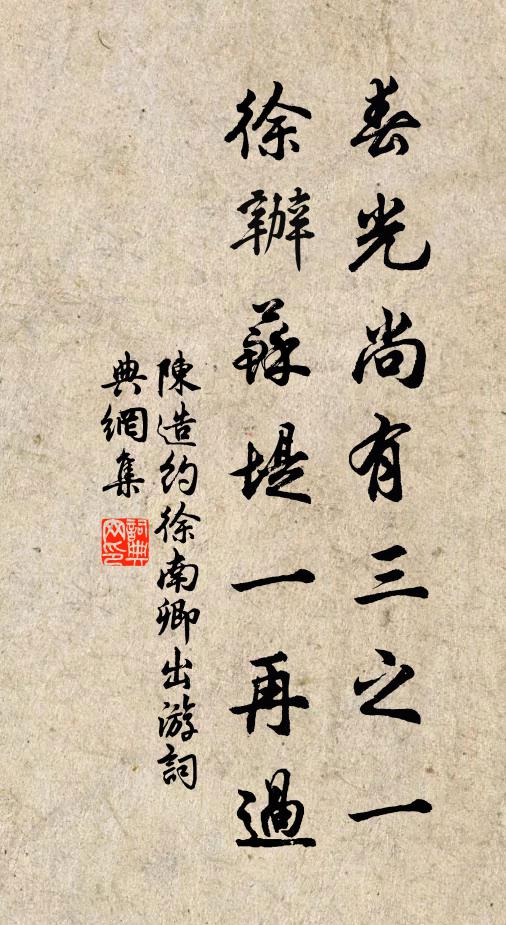 春光尚有三之一
徐辦蘇堤一再過
陳造約徐南卿出游詞
典網集
詞典网印